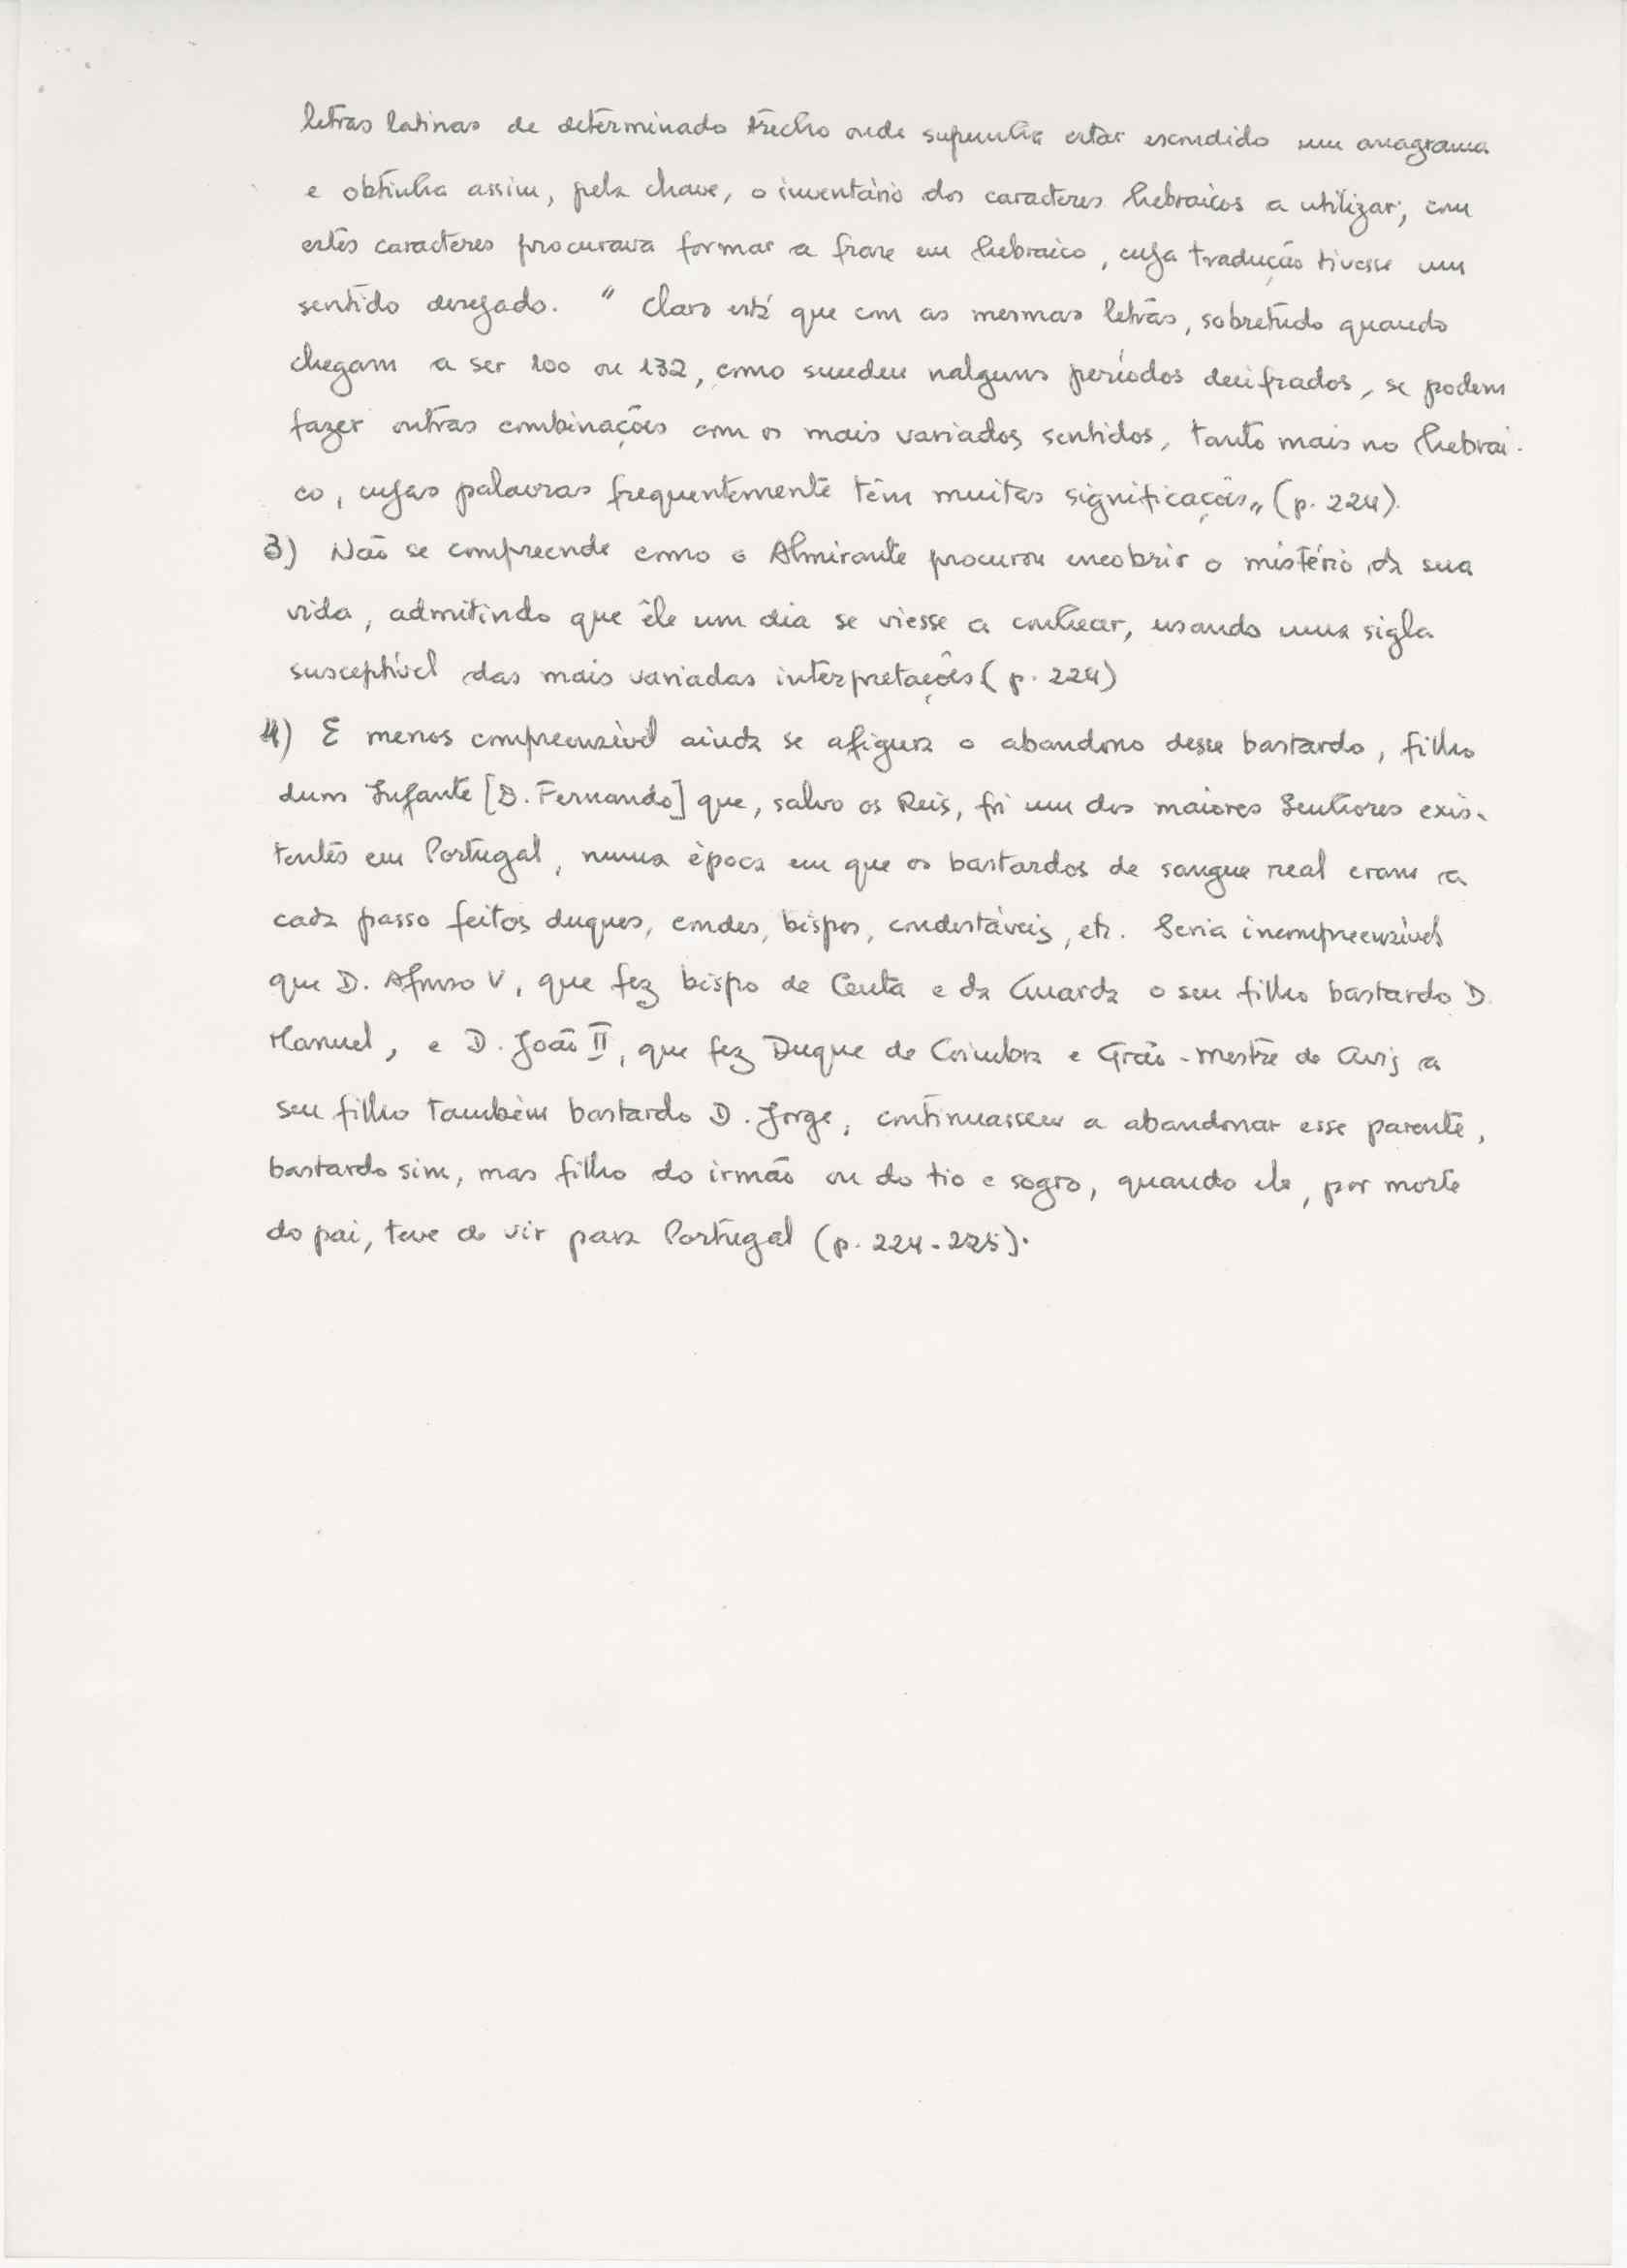 letras latinas de determinado trecho onde supunha estar escondido um anagrama
e obtinha assim, pela chave, o inventário dos caracteres hebraicos a utilizar; com
estes caracteres procurava formar a frase em hebraico, cuja tradução tivesse um
sentido desejado. " Claro está que com as mesmas letras, sobretudo quando
chegam a ser 100 ou 132, como sucedeu nalguns períodos decifrados, se podem
fazer outras combinações com os mais variados sentidos, tanto mais no hebrai-
co, cujas palavras frequentemente têm muitas significações„ (p. 224).
3) Não se compreende como o Almirante procurou encobrir o mistério da sua
vida, admitindo que êle um dia se viesse a conhecer, usando uma sigla
susceptível das mais variadas interpretações (p. 224)
4) E menos compreensível ainda se afigura o abandono desse bastardo, filho
dum Infante [D. Fernando] que, salvo os Reis, foi um dos maiores Senhores exis-
tentes em Portugal, numa època em que os bastardos de sangue real eram a
cada passo feitos duques, condes, bispos, condestáveis, etc. Seria incompreensível
que D. Afonso V, que fez bispo de Ceuta e da Guarda o seu filho bastardo D.
Manuel, e D. João II, que fez Duque de Coimbra e Grão-mestre de Avis a
seu filho também bastardo D. Jorge, continuassem a abandonar esse parente,
bastardo sim, mas filho do irmão ou do tio e sogro, quando ele, por morte
do pai, teve de vir para Portugal (p. 224-225).